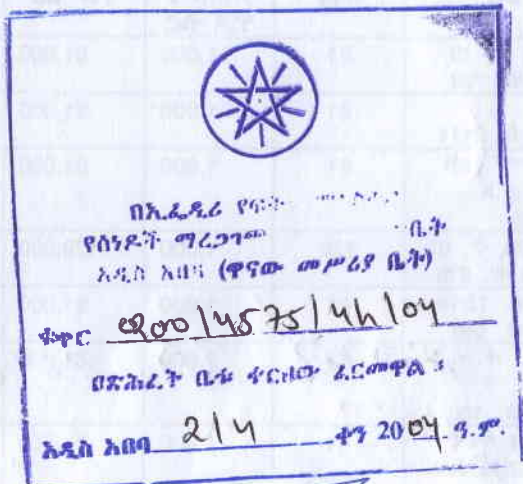 በኢ.ፌ.ዲ.ሪ የፍት
የሰነዶች ማረጋገጫ ቤት
አዲስ አበባ (ዋናው መሥሪያ ቤት)
ቁጥር /4575/4h/04
በጽሕፈት ቤቱ ቀርበው ፈርመዋል ፡
አዲስ አበባ 2/4 ቀን 2004 ዓ.ም.